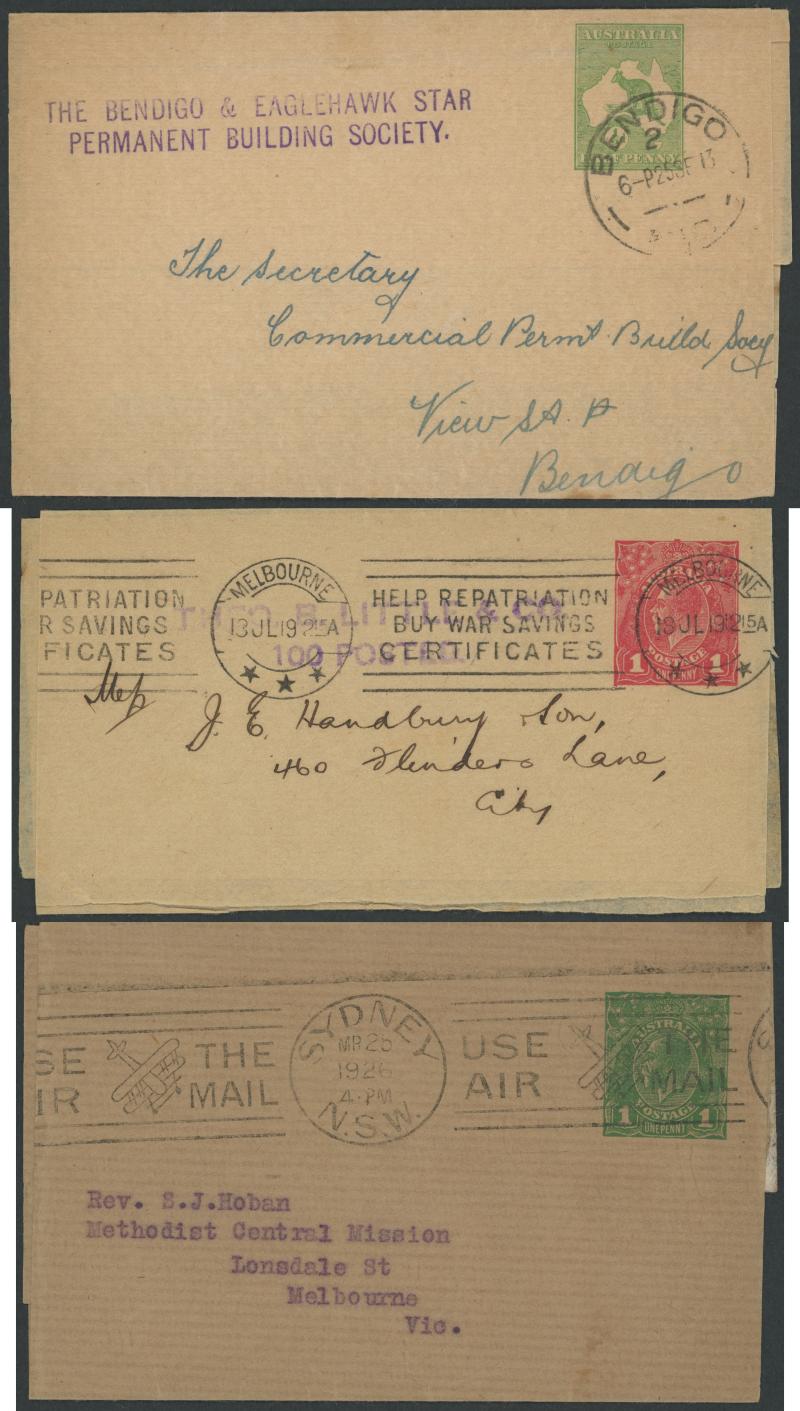 AUSTRALIA
POSTAGE
HALF PENNY
THE BENDIGO & EAGLEHAWK STAR
PERMANENT BUILDING SOCIETY.
BENDIGO
2
6-P25SE13
The Secretary
Commercial Permt Build Socy
View St
Bendigo
PATRIATION
R SAVINGS
FICATES
MELBOURNE
13JL19 1215A
HELP REPATRIATION
BUY WAR SAVINGS
CERTIFICATES
MELBOURNE
13JL19 1215A
THEO. B. LITTLE & CO.
100 POSTED.
POSTAGE
1 ONE PENNY 1
J. E. Handbury & Son,
460 Flinders Lane,
City
SE THE
IR MAIL
SYDNEY
MR 25
1926
4-PM
N.S.W.
USE THE
AIR MAIL
AUSTRALIA
POSTAGE
1 ONE PENNY 1
Rev. S.J.Hoban
Methodist Central Mission
Lonsdale St
Melbourne
Vic.